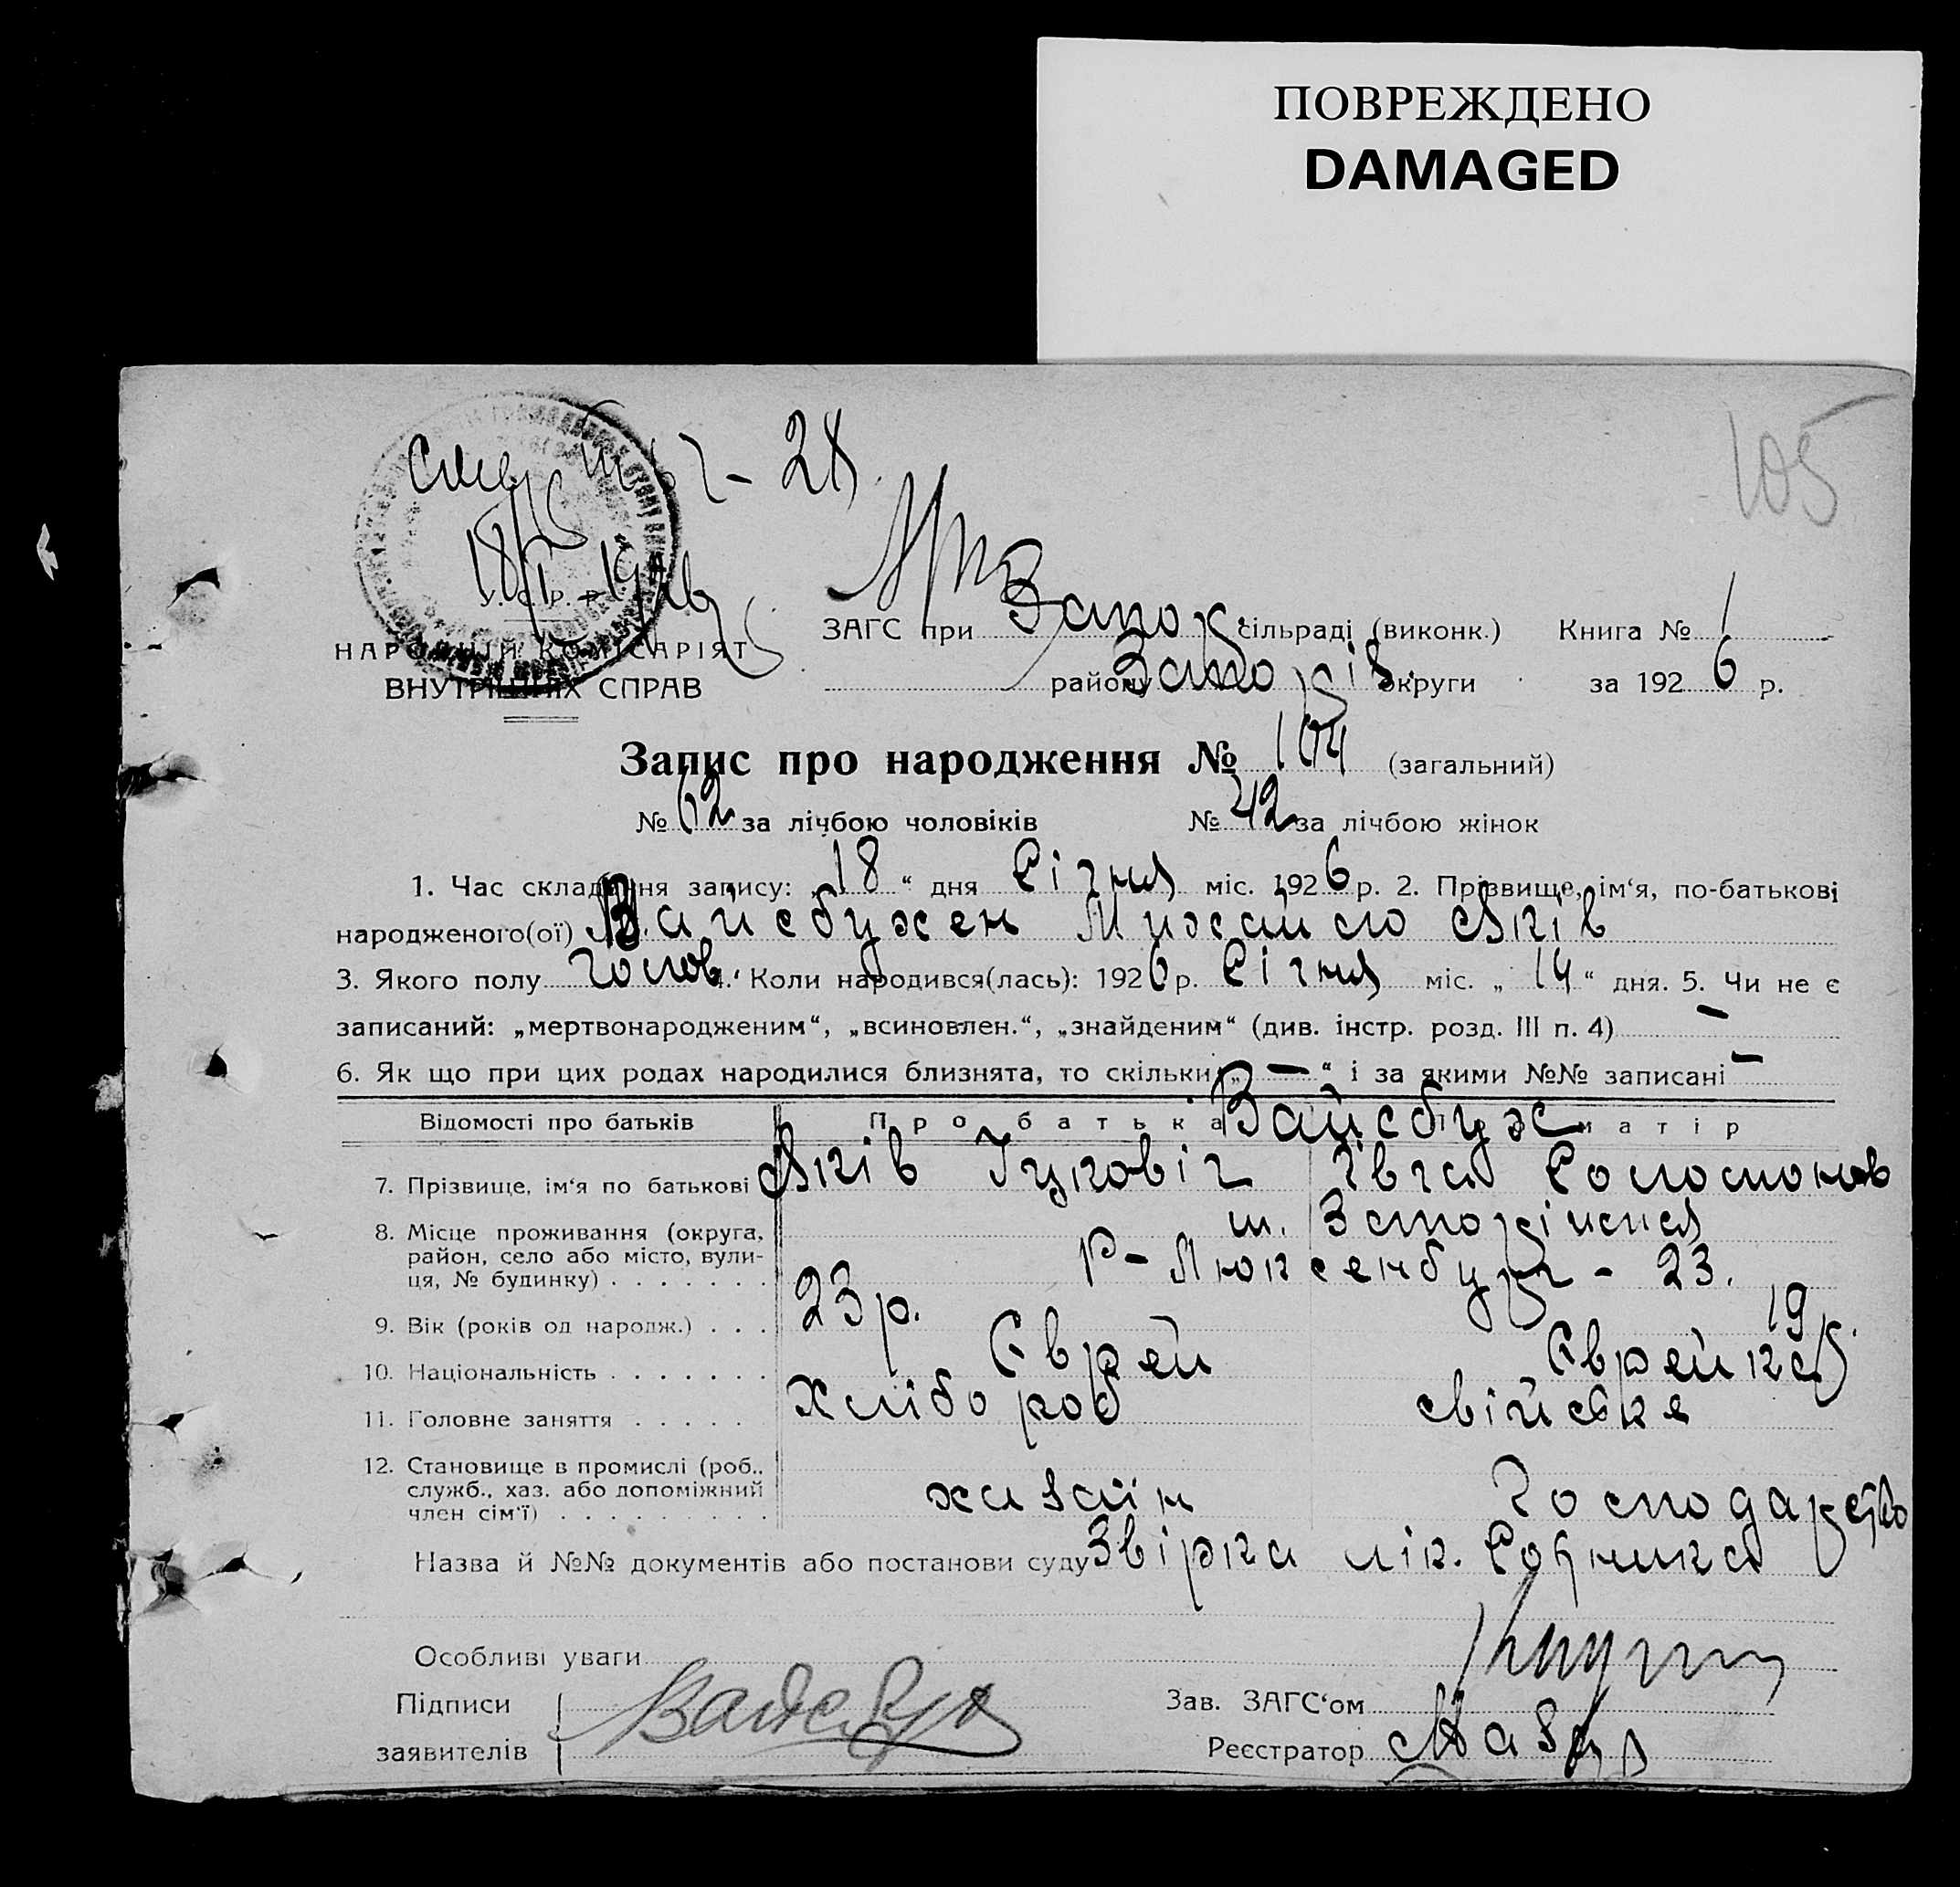 ПОВРЕЖДЕНО
DAMAGED
105
28
18/I-1926
У. С. Р. Р.
НАРОДНІЙ КОМІСАРІЯТ
ВНУТРІШНІХ СПРАВ
ЗАГС при Запор. сільраді (виконк.) Книга № 1
району Запоріз. округи за 1926 р.
Запис про народження № 104 (загальний)
№ 62 за лічбою чоловіків № 42 за лічбою жінок
1. Час складання запису: 18 “ дня Січня міс. 1926 р. 2. Прізвище, ім‘я, по-батькові
народженого(ої) Михайло Яків
3. Якого полу Чолов. 4. Коли народився(лась): 1926 р. Січня міс. „ 14 “ дня. 5. Чи не є
записаний: „мертвонародженим“, „всиновлен.“, „знайденим“ (див. інстр. розд. III п. 4) –
6. Як що при цих родах народилися близнята, то скільки „ – “ і за якими №№ записані –
Відомості про батьків Про батька матір
7. Прізвище, ім‘я по батькові Яків Іцковіч Соломонов
8. Місце проживання (округа, район, село або місто, вулиця, № будинку) . . . . . . . м. Запоріжжя
Р-Люксембург - 23.
9. Вік (років од народж.) . . . 23 р. 19 р.
10. Національність . . . . . . . Єврей Єврейка
11. Головне заняття . . . . . Хлібороб свійське
12. Становище в промислі (роб., служб., хаз. або допоміжний член сім‘ї) . . . . . . . . . хазаїн Господарство
Назва й №№ документів або постанови суду Звірка лік.
Особливі уваги
Підписи
заявителів
Зав. ЗАГС‘ом
Реєстратор